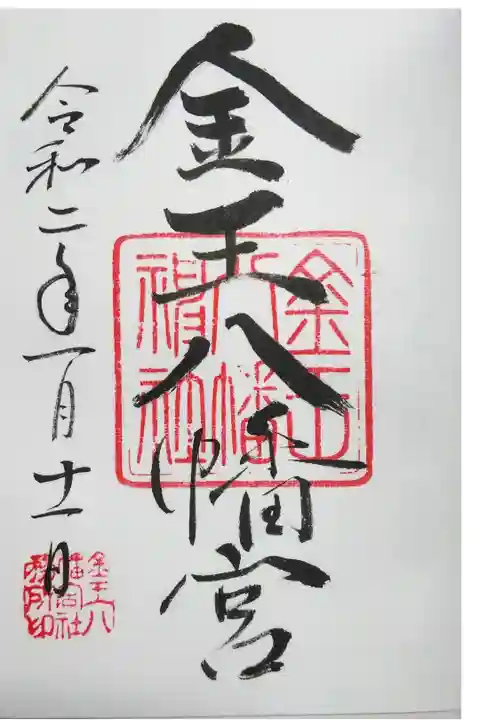 金王八幡宮
金王八幡神社
令和二年一月十一日
金王八幡宮社務所印